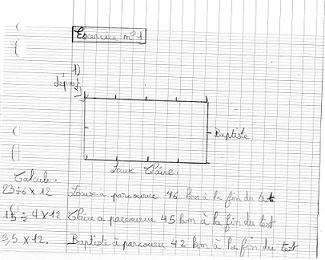 Exercice n°1
1)
départ
Baptiste
Claire
Calcule:
23÷6 x 12 Louise a parcourue 46 km à la fin du test
15÷4 x 12 Claire a parcourue 45 km à la fin du test
3,5 x 12. Baptiste à parcourue 42 km à la fin du test